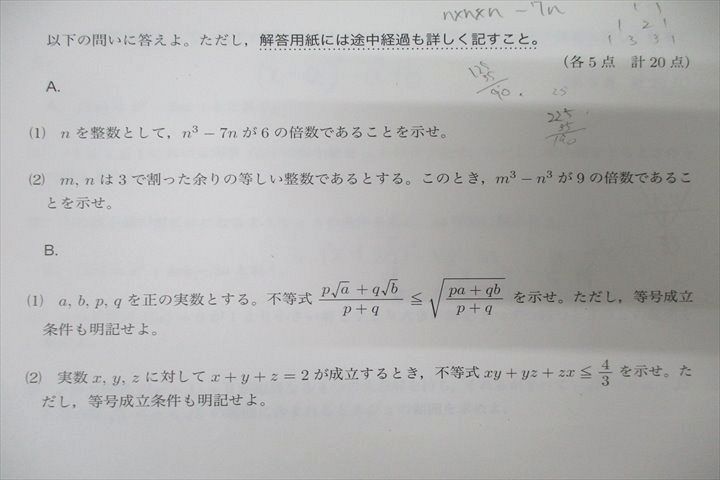 n×n×n - 7n
1 1
1 2 1
1 3 3 1
以下の問いに答えよ。ただし，解答用紙には途中経過も詳しく記すこと。
(各5点 計20点)
125
35
90.
25
225
35
A.
(1) n を整数として，n³ − 7n が 6 の倍数であることを示せ。
(2) m, n は 3 で割った余りの等しい整数であるとする。このとき，m³ − n³ が 9 の倍数であるこ
とを示せ。
B.
(1) a, b, p, q を正の実数とする。不等式 (p√a + q√b)/(p + q) ≦ √((pa + qb)/(p + q)) を示せ。ただし，等号成立
条件も明記せよ。
(2) 実数 x, y, z に対して x + y + z = 2 が成立するとき，不等式 xy + yz + zx ≦ 4/3 を示せ。た
だし，等号成立条件も明記せよ。